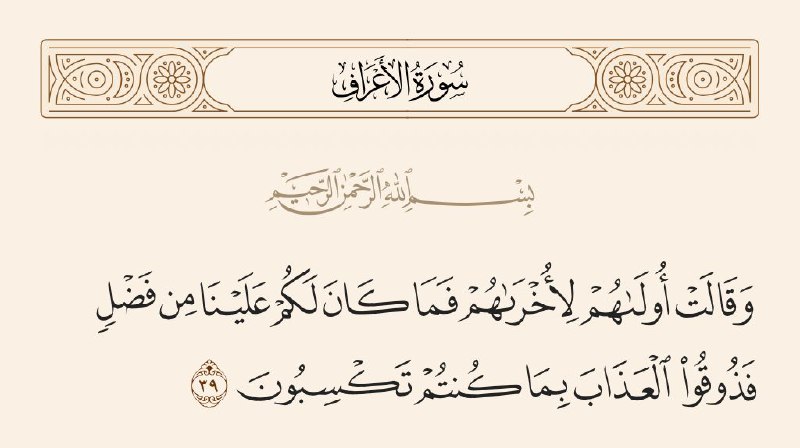 سُورَةُ الأَعْرَافِ
بِسْمِ ٱللَّهِ ٱلرَّحْمَٰنِ ٱلرَّحِيمِ
وَقَالَتْ أُولَىٰهُمْ لِأُخْرَىٰهُمْ فَمَا كَانَ لَكُمْ عَلَيْنَا مِن فَضْلٍ
فَذُوقُوا۟ ٱلْعَذَابَ بِمَا كُنتُمْ تَكْسِبُونَ ٣٩